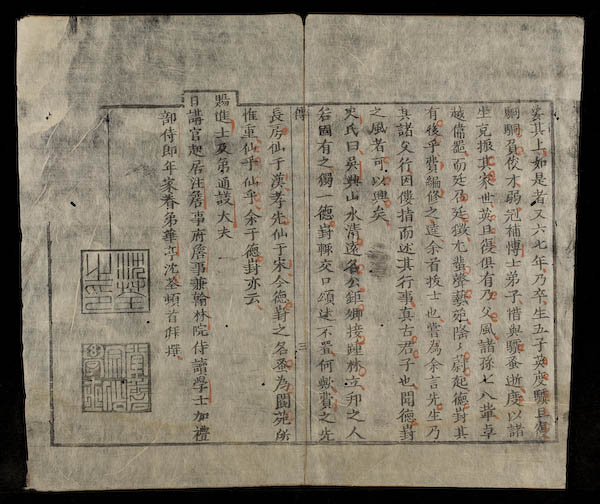 其上如是者又六七年乃卒生五子英度驥且復
駉駉負俊才弱冠補博士弟子惜與驥蚤逝度以諸
生克振其家世英且復俱有乃父風諸孫七八輩卓
越儔輩而廷廷徵尤蜚聲藝苑隆隆蔚起德封其
有後乎費編修之逵余首拔士也嘗為余言先生乃
其諸父行因僂指而述其行事真古君子也聞德封
之風者可以興矣
史氏曰吳興山水清逸名公鉅卿接踵林立邦之人
若國有之獨一德封輒交口頌述不置何歟費之先
傳 三
長房仙于漢孝先仙于宋今德封之名為閬苑所
惟重仙乎仙乎余于德封亦云
賜進士及第通議大夫
日講官起居注詹事府詹事兼翰林院侍讀學士加禮
部侍郎年家眷弟華亭沈荃頓首拜撰
沈荃之印